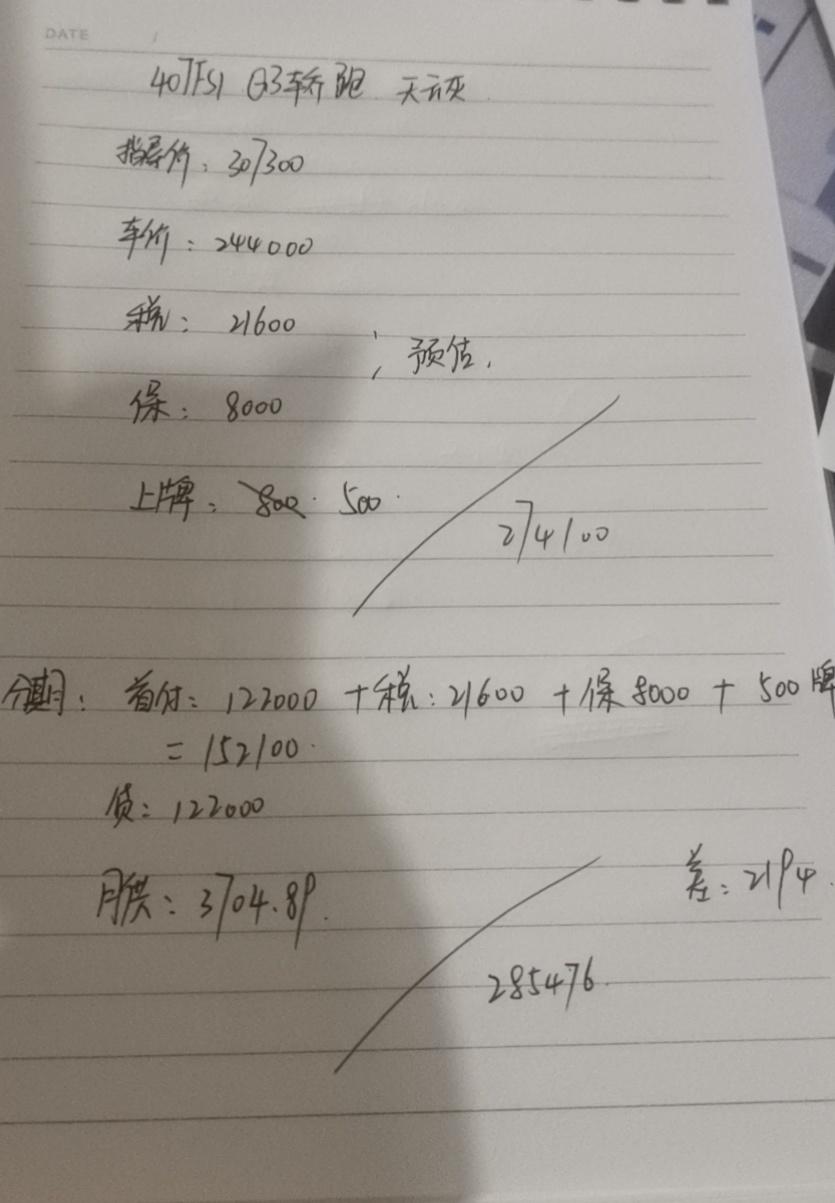 DATE /
40TFSI Q3轿跑 天云灰
指导价：307300
车价：244000
税：21600
预估.
保：8000
上牌：800. 500.
274100
分期：首付：122000 +税：21600 +保8000 + 500牌
=152100.
贷：122000
月供：3704.89.
差：2194.
285476.